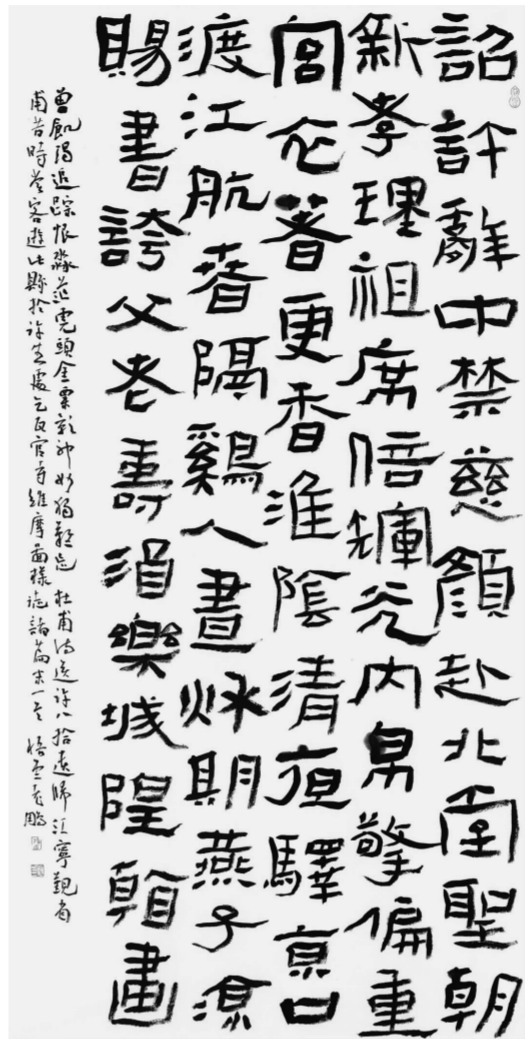 詔許辭中禁慈顏赴北堂聖朝
新孝理祖席倍輝光內帛擎偏重
宮衣著更香淮陰清夜驛京口
渡江航春隔鷄人晝秋期燕子涼
賜書誇父老壽酒樂城隍看畫
曾飢渴追踪恨淼茫虎頭金粟影神妙獨難忘 杜甫詩送許八拾遺歸江寧覲省
甫昔時嘗客遊此縣於許生處乞瓦官寺維摩圖樣志諸篇末一首